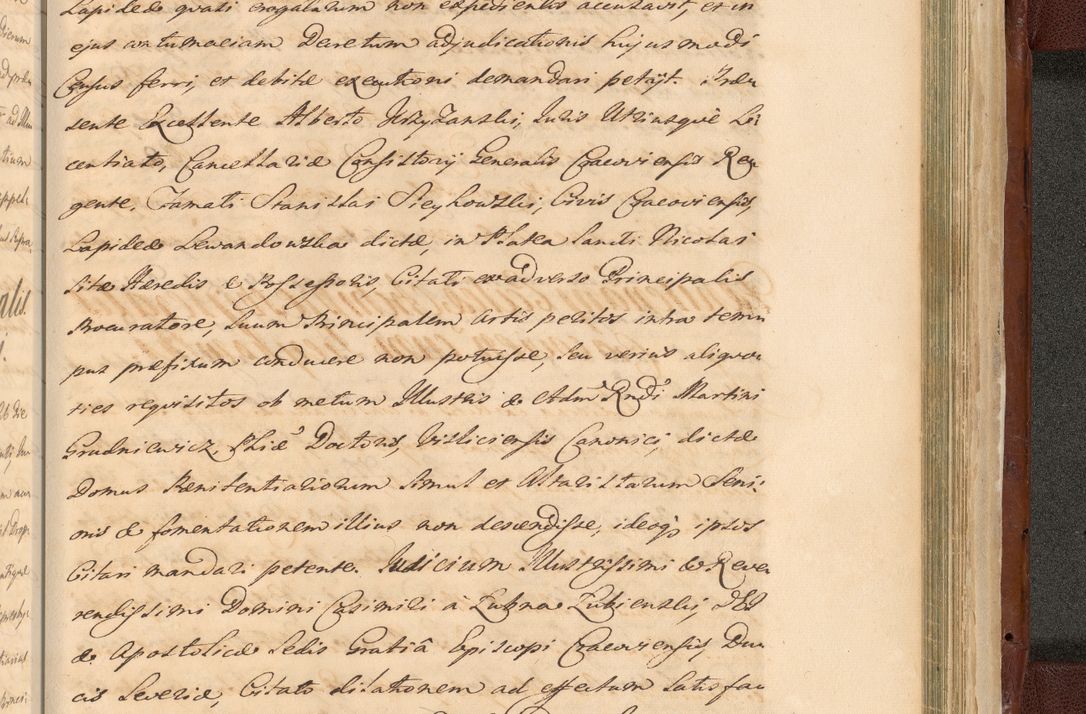 Lapideo quati rogatarum non expedientis accusavit, et in
ejus contumaciam Decretum adjudicationis hujusmodi
Census ferri, et debitæ executioni demandari petijt. Præ
sente Excellente Alberto Krzyżanski, Juris Utriusquè Li:
centiato, Cancellariæ Consistorij Generalis Cracoviensis Re
gente, Famati Stanislai Pieykowski, Civis Cracoviensis,
Lapideæ Lewandowska dictæ, in Platea Sancti Nicolai
sitæ Hæredis & Possessoris, Citati ex adverso Principalis
Procuratore, suum Principalem artis peritos intra tem
pus præfixum conducere non potuisse, seu verius aliquo
ties requisitos ob metum Illustris & Adm Rndi Martini
Grudniewicz, Phiæ Doctoris, Visliciensis Canonici, dictæ
Domus Pænitentiariorum simul et Altaristarum Seni:
oris & fomentationem illius non descendisse, ideoq, ipsos
Citari mandari petente. Judicium Illustrissimi & Reve
rendissimi Domini Casimiri à Łubna Łubienski, DEI
& Apostolicæ Sedis Gratiâ Episcopi Cracoviensis, Du
cis Severiæ, Citato dilationem ad effectum satisfa